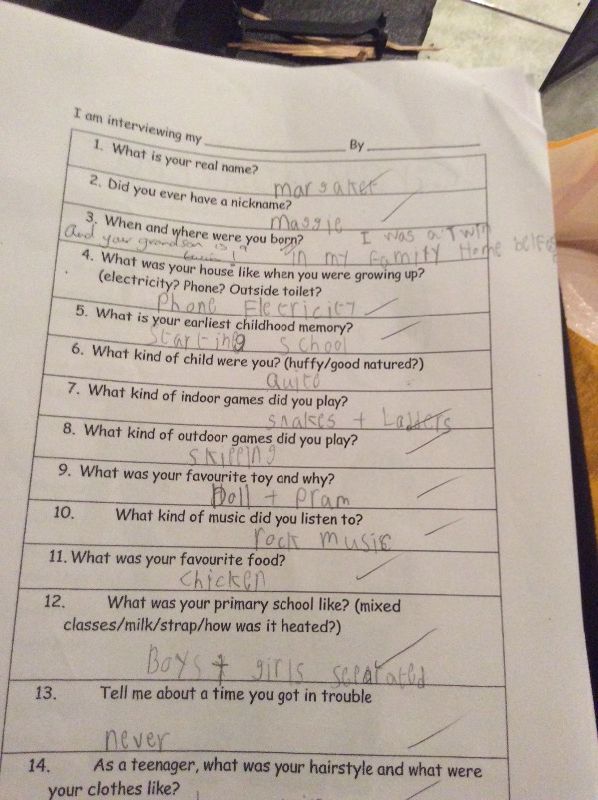 I am interviewing my ____________ By ____________
1. What is your real name?
margaket
2. Did you ever have a nickname?
Maggie
3. When and where were you born? I was a Twin
And your grandson is a
in my Family Home belfas
4. What was your house like when you were growing up?
(electricity? Phone? Outside toilet?
Phone Electricity
5. What is your earliest childhood memory?
Starting School
6. What kind of child were you? (huffy/good natured?)
Quite
7. What kind of indoor games did you play?
snakes + Ladders
8. What kind of outdoor games did you play?
SKipping
9. What was your favourite toy and why?
Doll + Pram
10. What kind of music did you listen to?
rock music
11. What was your favourite food?
chicken
12. What was your primary school like? (mixed
classes/milk/strap/how was it heated?)
Boys + girls
13. Tell me about a time you got in trouble
never
14. As a teenager, what was your hairstyle and what were
your clothes like?